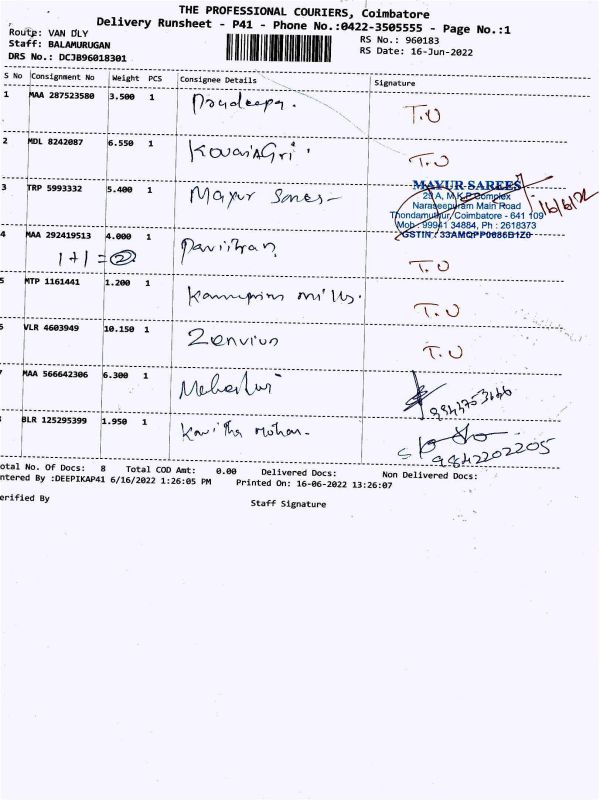 THE PROFESSIONAL COURIERS, Coimbatore
Delivery Runsheet - P41 - Phone No.:0422-3505555 - Page No.:1
Route: VAN DLY
RS No.: 960183
Staff: BALAMURUGAN
RS Date: 16-Jun-2022
DRS No.: DCJB96018301
S No Consignment No Weight PCS Consignee Details Signature
1 MAA 287523580 3.500 1 T.U
2 MDL 8242087 6.550 1 KovaiAGri T.U
3 TRP 5993332 5.400 1 Mayur Sarees
MAYUR SAREES
Complex
Naraseepuram Main Road
Thondamuthur, Coimbatore - 641 109
Mob : 99941 34884, Ph : 2618373
GSTIN : 33AMQPP0686B1Z0
16/6/22
4 MAA 292419513 4.000 1 Pavithran T.U
1+1=2
5 MTP 1161441 1.200 1 mills. T.U
6 VLR 4603949 10.150 1 Zenvius T.U
MAA 566642306 6.300 1
BLR 125295399 1.950 1 Kavitha Mohan.
9842202205
otal No. Of Docs: 8 Total COD Amt: 0.00 Delivered Docs: Non Delivered Docs:
ntered By :DEEPIKAP41 6/16/2022 1:26:05 PM Printed On: 16-06-2022 13:26:07
erified By
Staff Signature